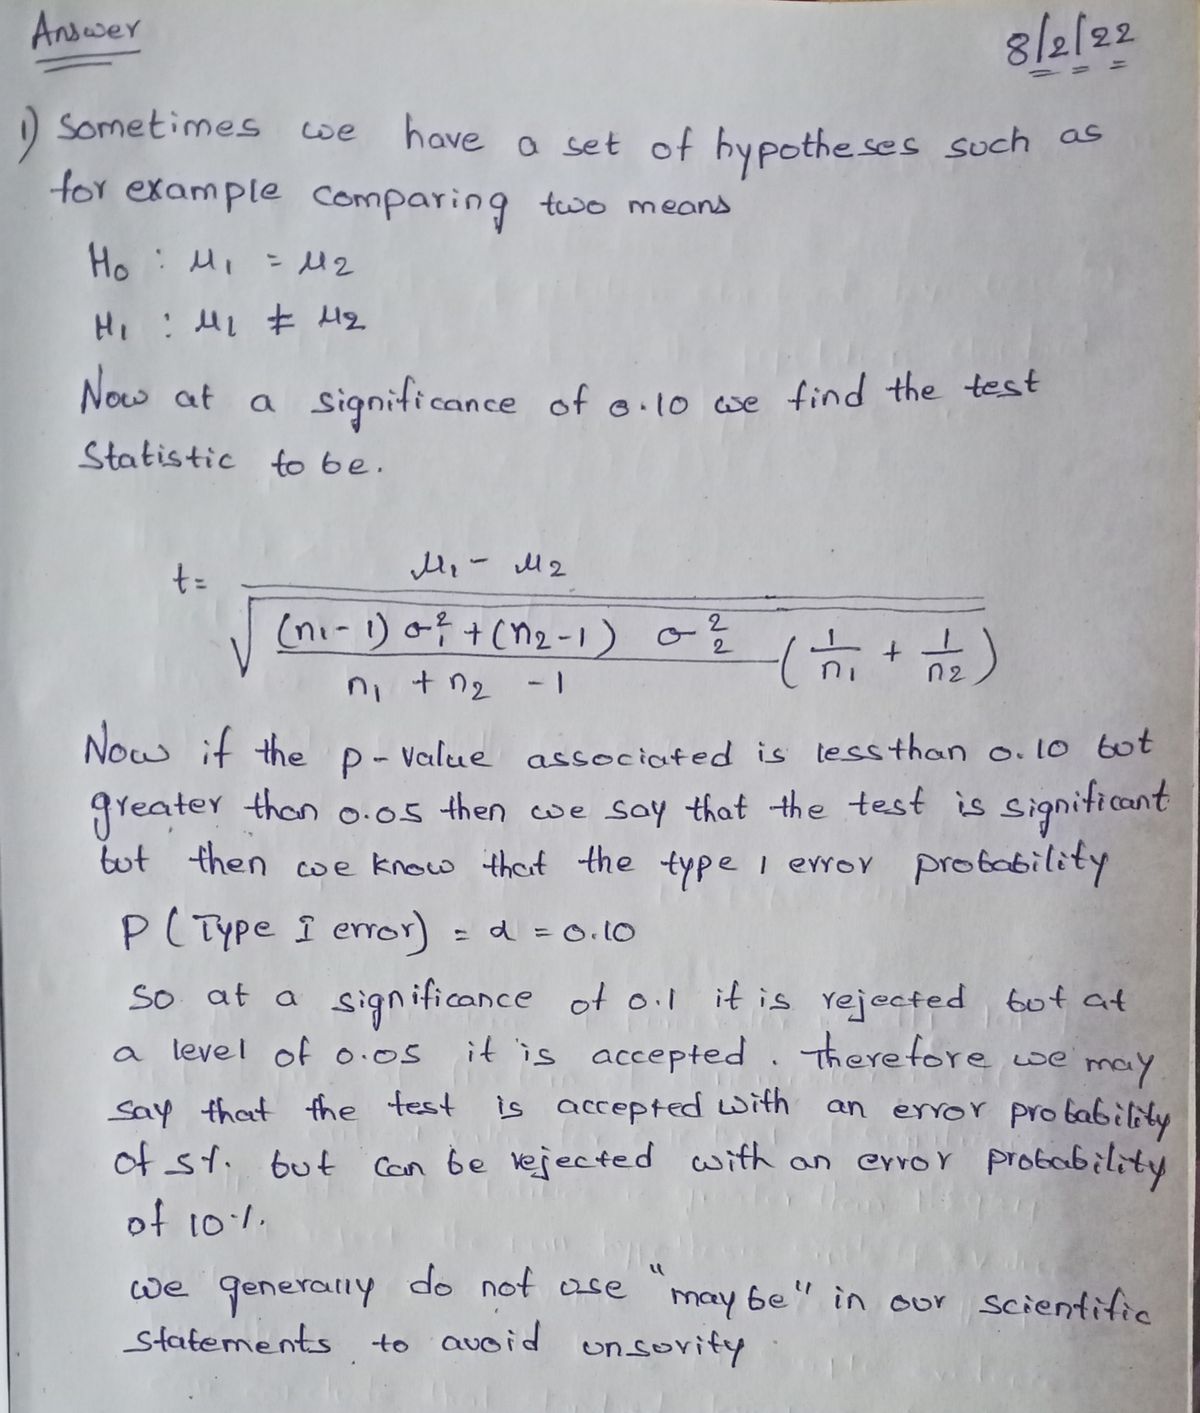 Answer
8/2/22
1) Sometimes we have a set of hypotheses such as
for example comparing two means
H0 : μ1 = μ2
H1 : μ1 ≠ μ2
Now at a significance of 0.10 we find the test
Statistic to be.
μ1 - μ2
t =
(n1 - 1) σ1² + (n2 - 1) σ2²
n1 + n2 - 1
(1/n1 + 1/n2)
Now if the p-value associated is less than 0.10 but
greater than 0.05 then we say that the test is significant
but then we know that the type 1 error probability
P (Type I error) = α = 0.10
So at a significance of 0.1 it is rejected but at
a level of 0.05 it is accepted. Therefore we may
say that the test is accepted with an error probability
of 5%. but can be rejected with an error probability
of 10%.
we generally do not use "maybe" in our scientific
statements to avoid unsurity